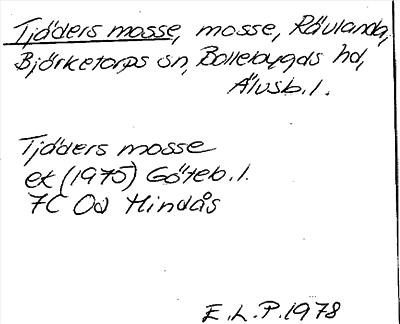 Tjäders mosse, mosse, Rävlanda,
Björketorps sn, Bollebygds hd,
Älvsb. l.
Tjäders mosse
ek (1975) Göteb. l.
7C 0d Hindås
E. L. P. 1978